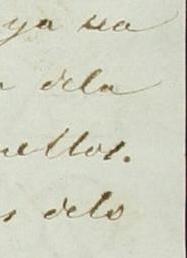 ya sea
dela
nellos.
s delo